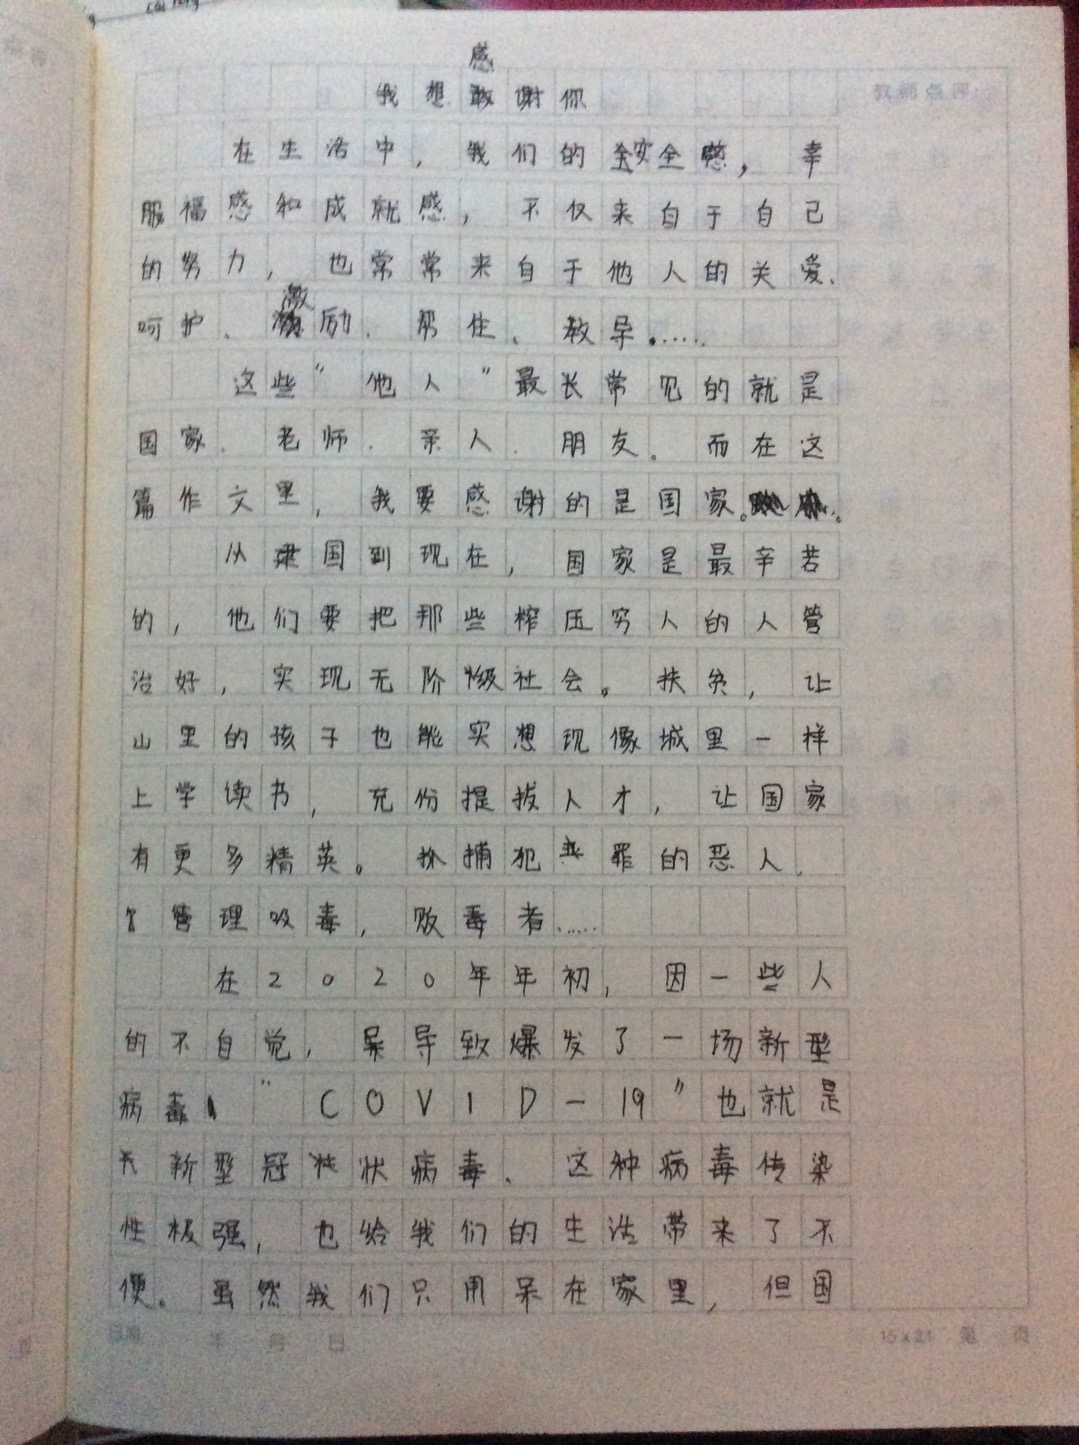 我想感谢你
教师点评:
在生活中，我们的安全感，幸
福感和成就感，不仅来自于自己
的努力，也常常来自于他人的关爱、
呵护、激励、帮住、教导。……
这些“他人”最长常见的就是
国家、老师、亲人、朋友。而在这
篇作文里，我要感谢的是国家。
从建国到现在，国家是最辛苦
的，他们要把那些榨压穷人的人管
治好，实现无阶级社会。扶贫，让
山里的孩子也能实想现像城里一样
上学读书，充份提拔人才，让国家
有更多精英。抓捕犯罪的恶人、
管理吸毒，败毒者……
在2020年年初，因一些人
的不自觉，导致爆发了一场新型
病毒，“COVID-19”也就是
新型冠状病毒、这种病毒传染
性极强，也给我们的生活带来了不
便。虽然我们只用呆在家里，但国
日期 年 月 日
15x21 第 页